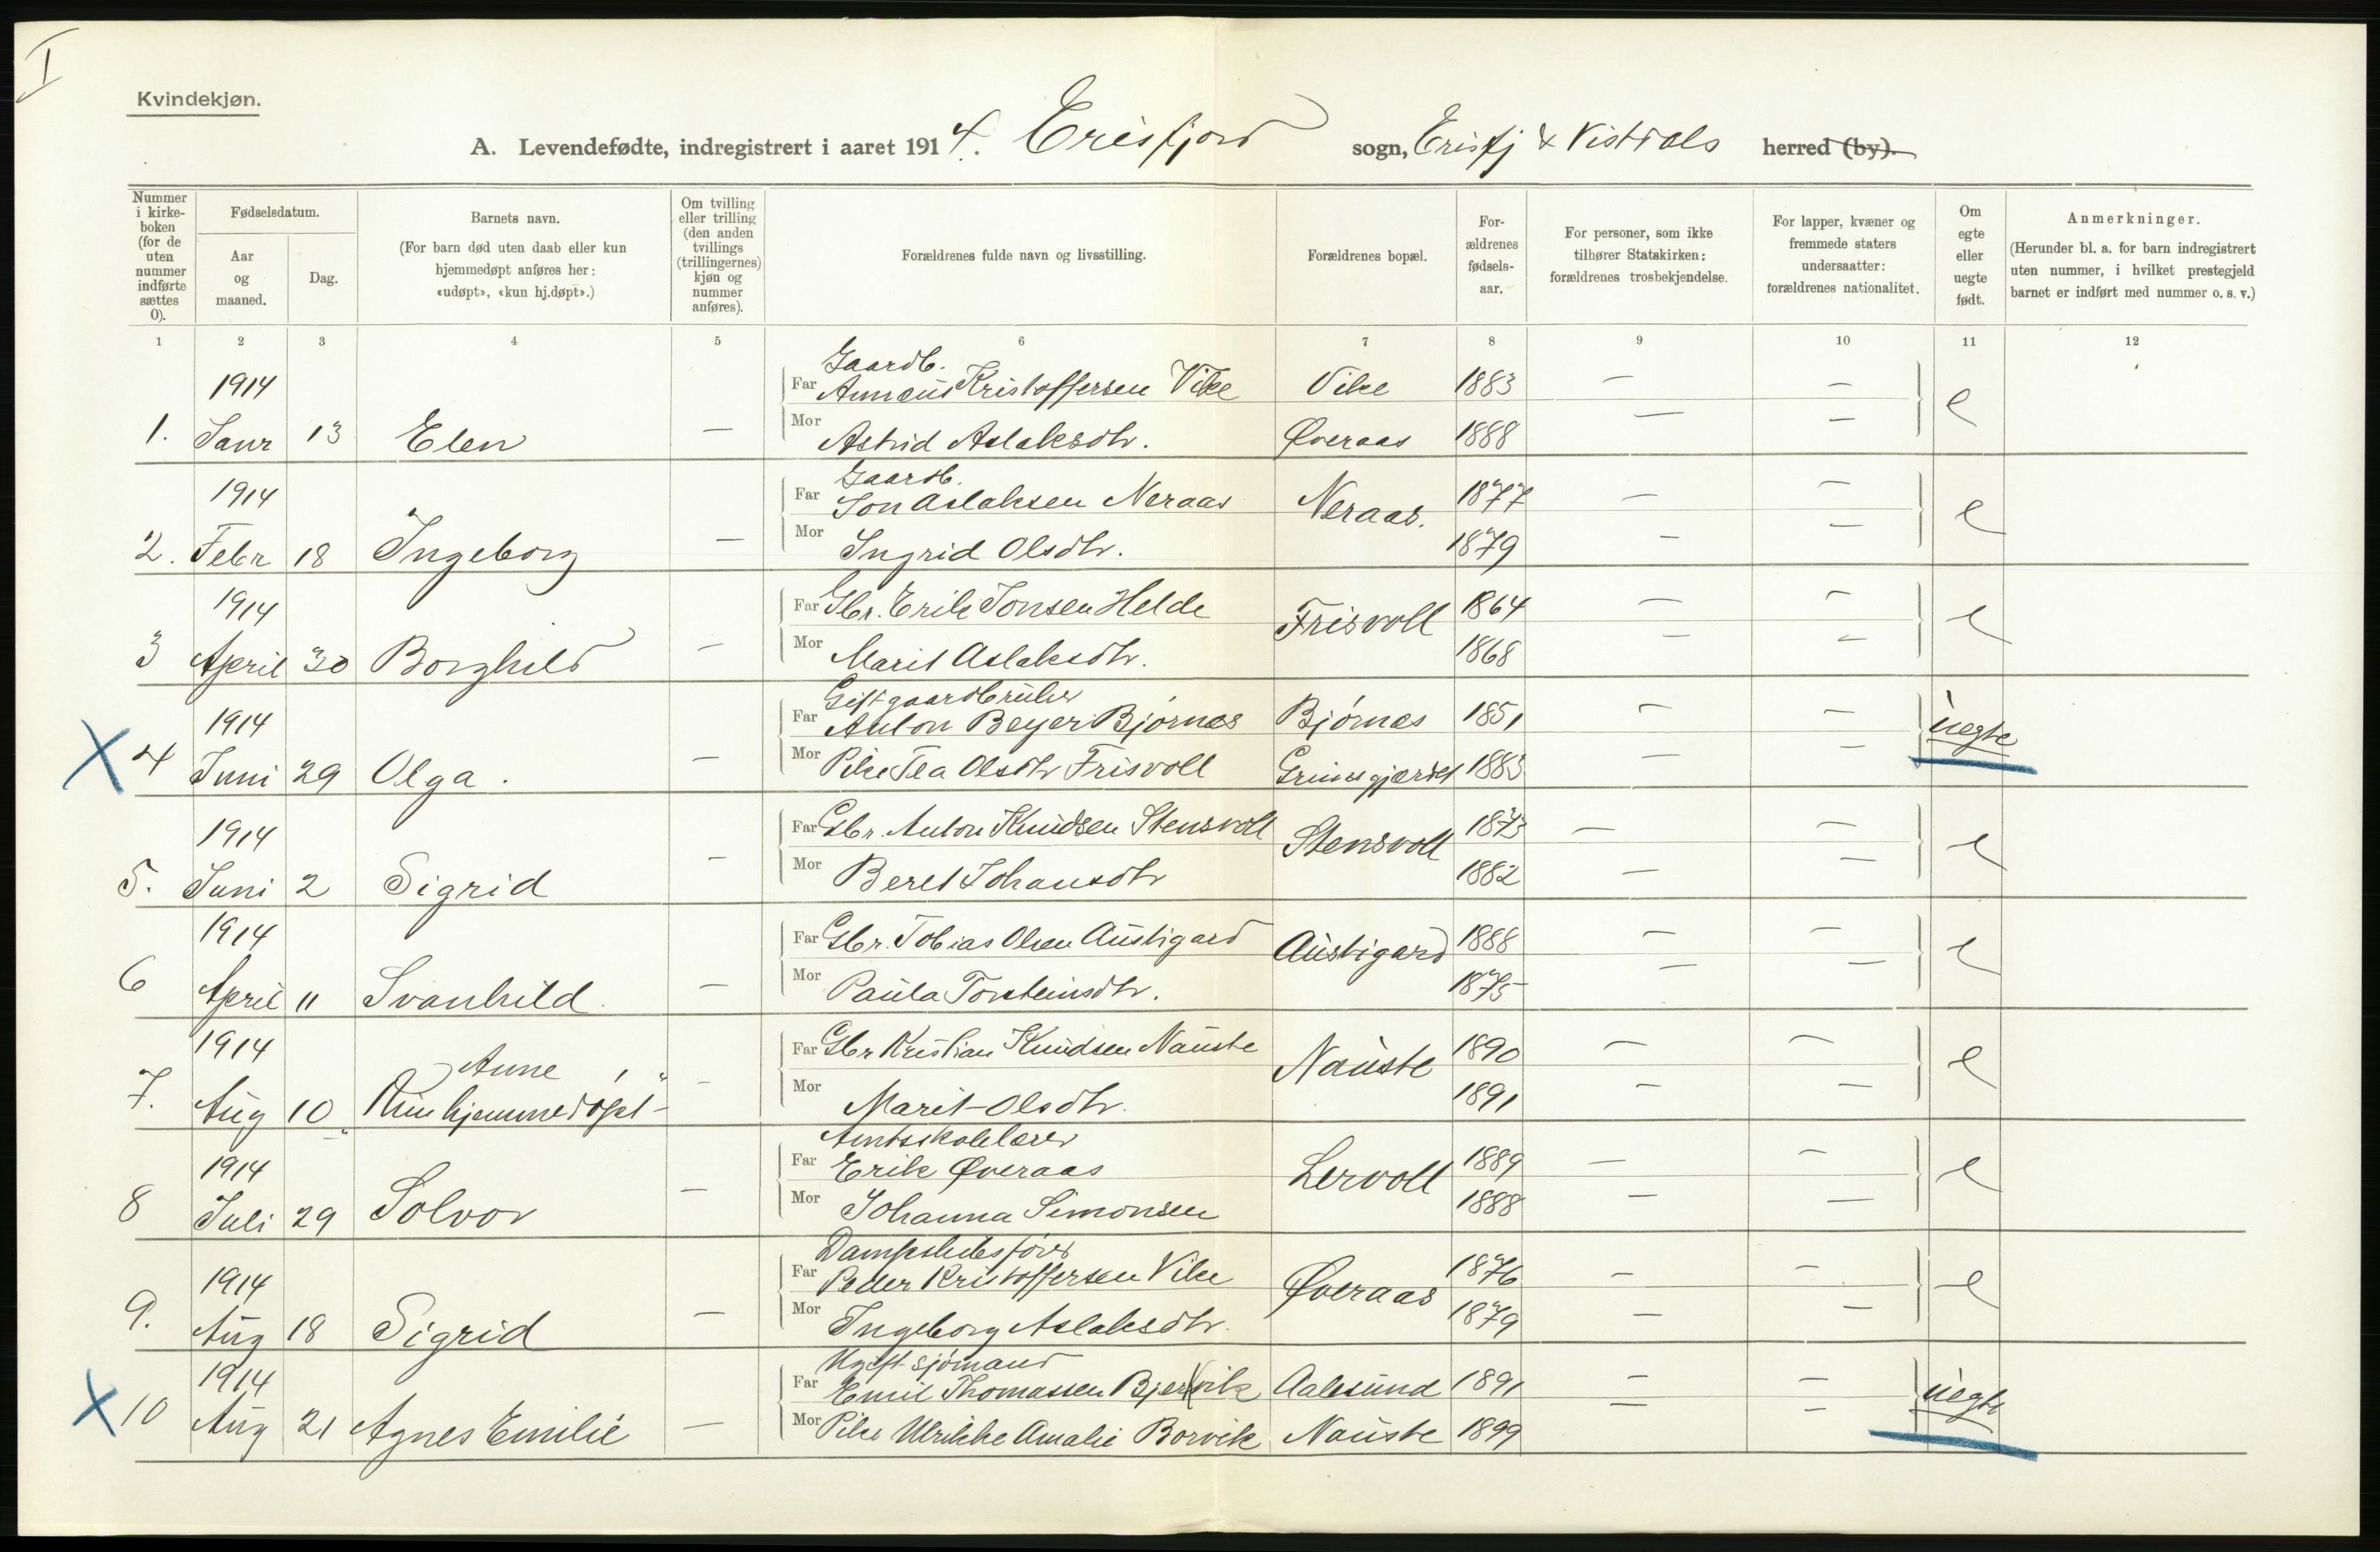 I
Kvindekjøn.
A. Levendefødte, indregistrert i aaret 1914. Erisfjord sogn, Erisfj & Vistdals herred (by).
Nummer i kirkeboken (for de uten nummer indførte sættes 0).
Fødselsdatum.
Aar og maaned.
Dag.
Barnets navn.
(For barn død uten daab eller kun hjemmedøpt anføres her: «udøpt», «kun hj.døpt».)
Om tvilling eller trilling (den anden tvillings (trillingernes) kjøn og nummer anføres).
Forældrenes fulde navn og livsstilling.
Forældrenes bopæl.
Forældrenes fødselsaar.
For personer, som ikke tilhører Statskirken: forældrenes trosbekjendelse.
For lapper, kvæner og fremmede staters undersaatter: forældrenes nationalitet.
Om egte eller uegte født.
Anmerkninger.
(Herunder bl. a. for barn indregistrert uten nummer, i hvilket prestegjeld barnet er indført med nummer o. s. v.)
1 2 3 4 5 6 7 8 9 10 11 12
Gaardb.
1914 Far Annæus Kristoffersen Vike Vike 1883 — — e
1. Janr 13 Elen — Mor Astrid Aslaksdtr. Øveraas 1888 — —
Gaardb.
1914 Far Jon Aslaksen Neraas Neraas. 1877 — — e
2. Febr 18 Ingeborg — Mor Ingrid Olsdtr. 1879 — —
1914 Far Gbr. Erik Jonsen Helde Frisvoll 1864 — — e
3 April 30 Borghild — Mor Marit Aslaksdtr. 1868 — —
Gift gaardbruker
1914 Far Anton Beyer Bjørnes Bjørnes 1851 — — uegte
X 4 Juni 29 Olga. — Mor Pike Tea Olsdtr Frisvoll Grimsgjærdet 1883 — —
1914 Far Gbr. Anton Knudsen Stensvoll Stensvoll 1873 — — e
5. Juni 2 Sigrid — Mor Beret Johansdtr 1882 — —
1914 Far Gbr. Tobias Olsen Austigard Austigard 1888 — — e
6 April 11 Svanhild. — Mor Paula Torsteinsdtr. 1875 — —
1914 Anne Far Gbr Kristian Knudsen Nauste Nauste 1890 — — e
7. Aug 10 „Kun hjemmedøpt" — Mor Marit Olsdtr. 1891 — —
Amtsskolelærer
1914 Far Erik Øveraas Lervoll 1889 — — e
8 Juli 29 Solvor — Mor Johanna Simonsen 1888 — —
Dampskibsfører
1914 Far Peder Kristoffersen Vike Øveraas 1876 — — e
9. Aug 18 Sigrid — Mor Ingeborg Aslaksdtr. 1879 — —
Ugift sjømand
1914 Far Emil Thomassen Bjervik Aalesund 1891 — — uegte
X 10 Aug 21 Agnes Emilie — Mor Pike Ulrikke Amalie Borvik Nauste 1899 — —